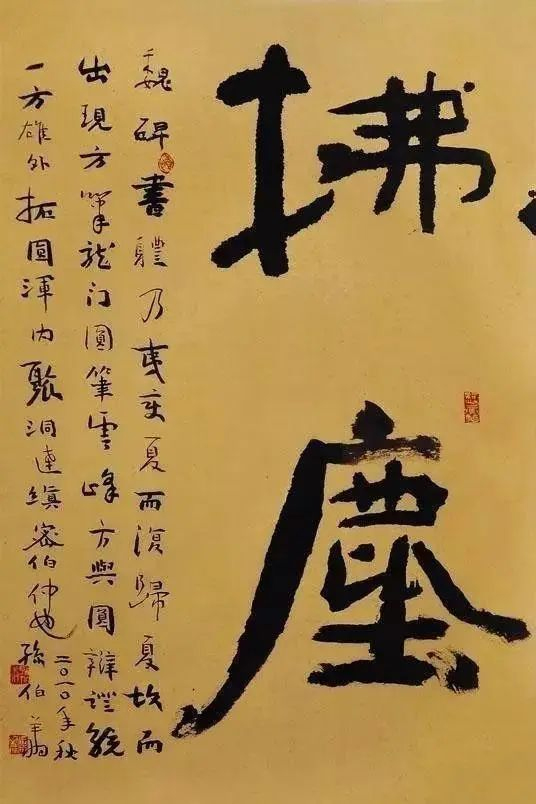 拂塵
魏碑書體乃夷变夏而復歸夏故而
出現方筆龙门圓筆雲峰方與圓辯證統
一方雄外拓圓渾内聚洞達縝密伯仲也
二〇一〇年秋
孫伯翔